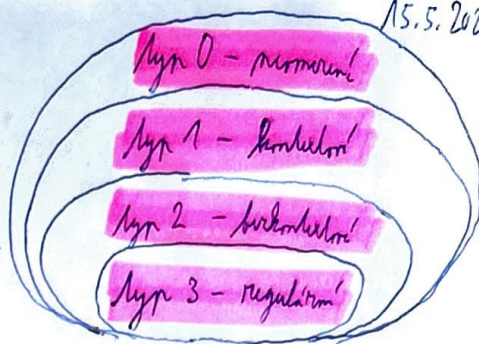 15.5.202
typ 0 – neomezené
typ 1 – kontextové
typ 2 – bezkontextové
typ 3 – regulární